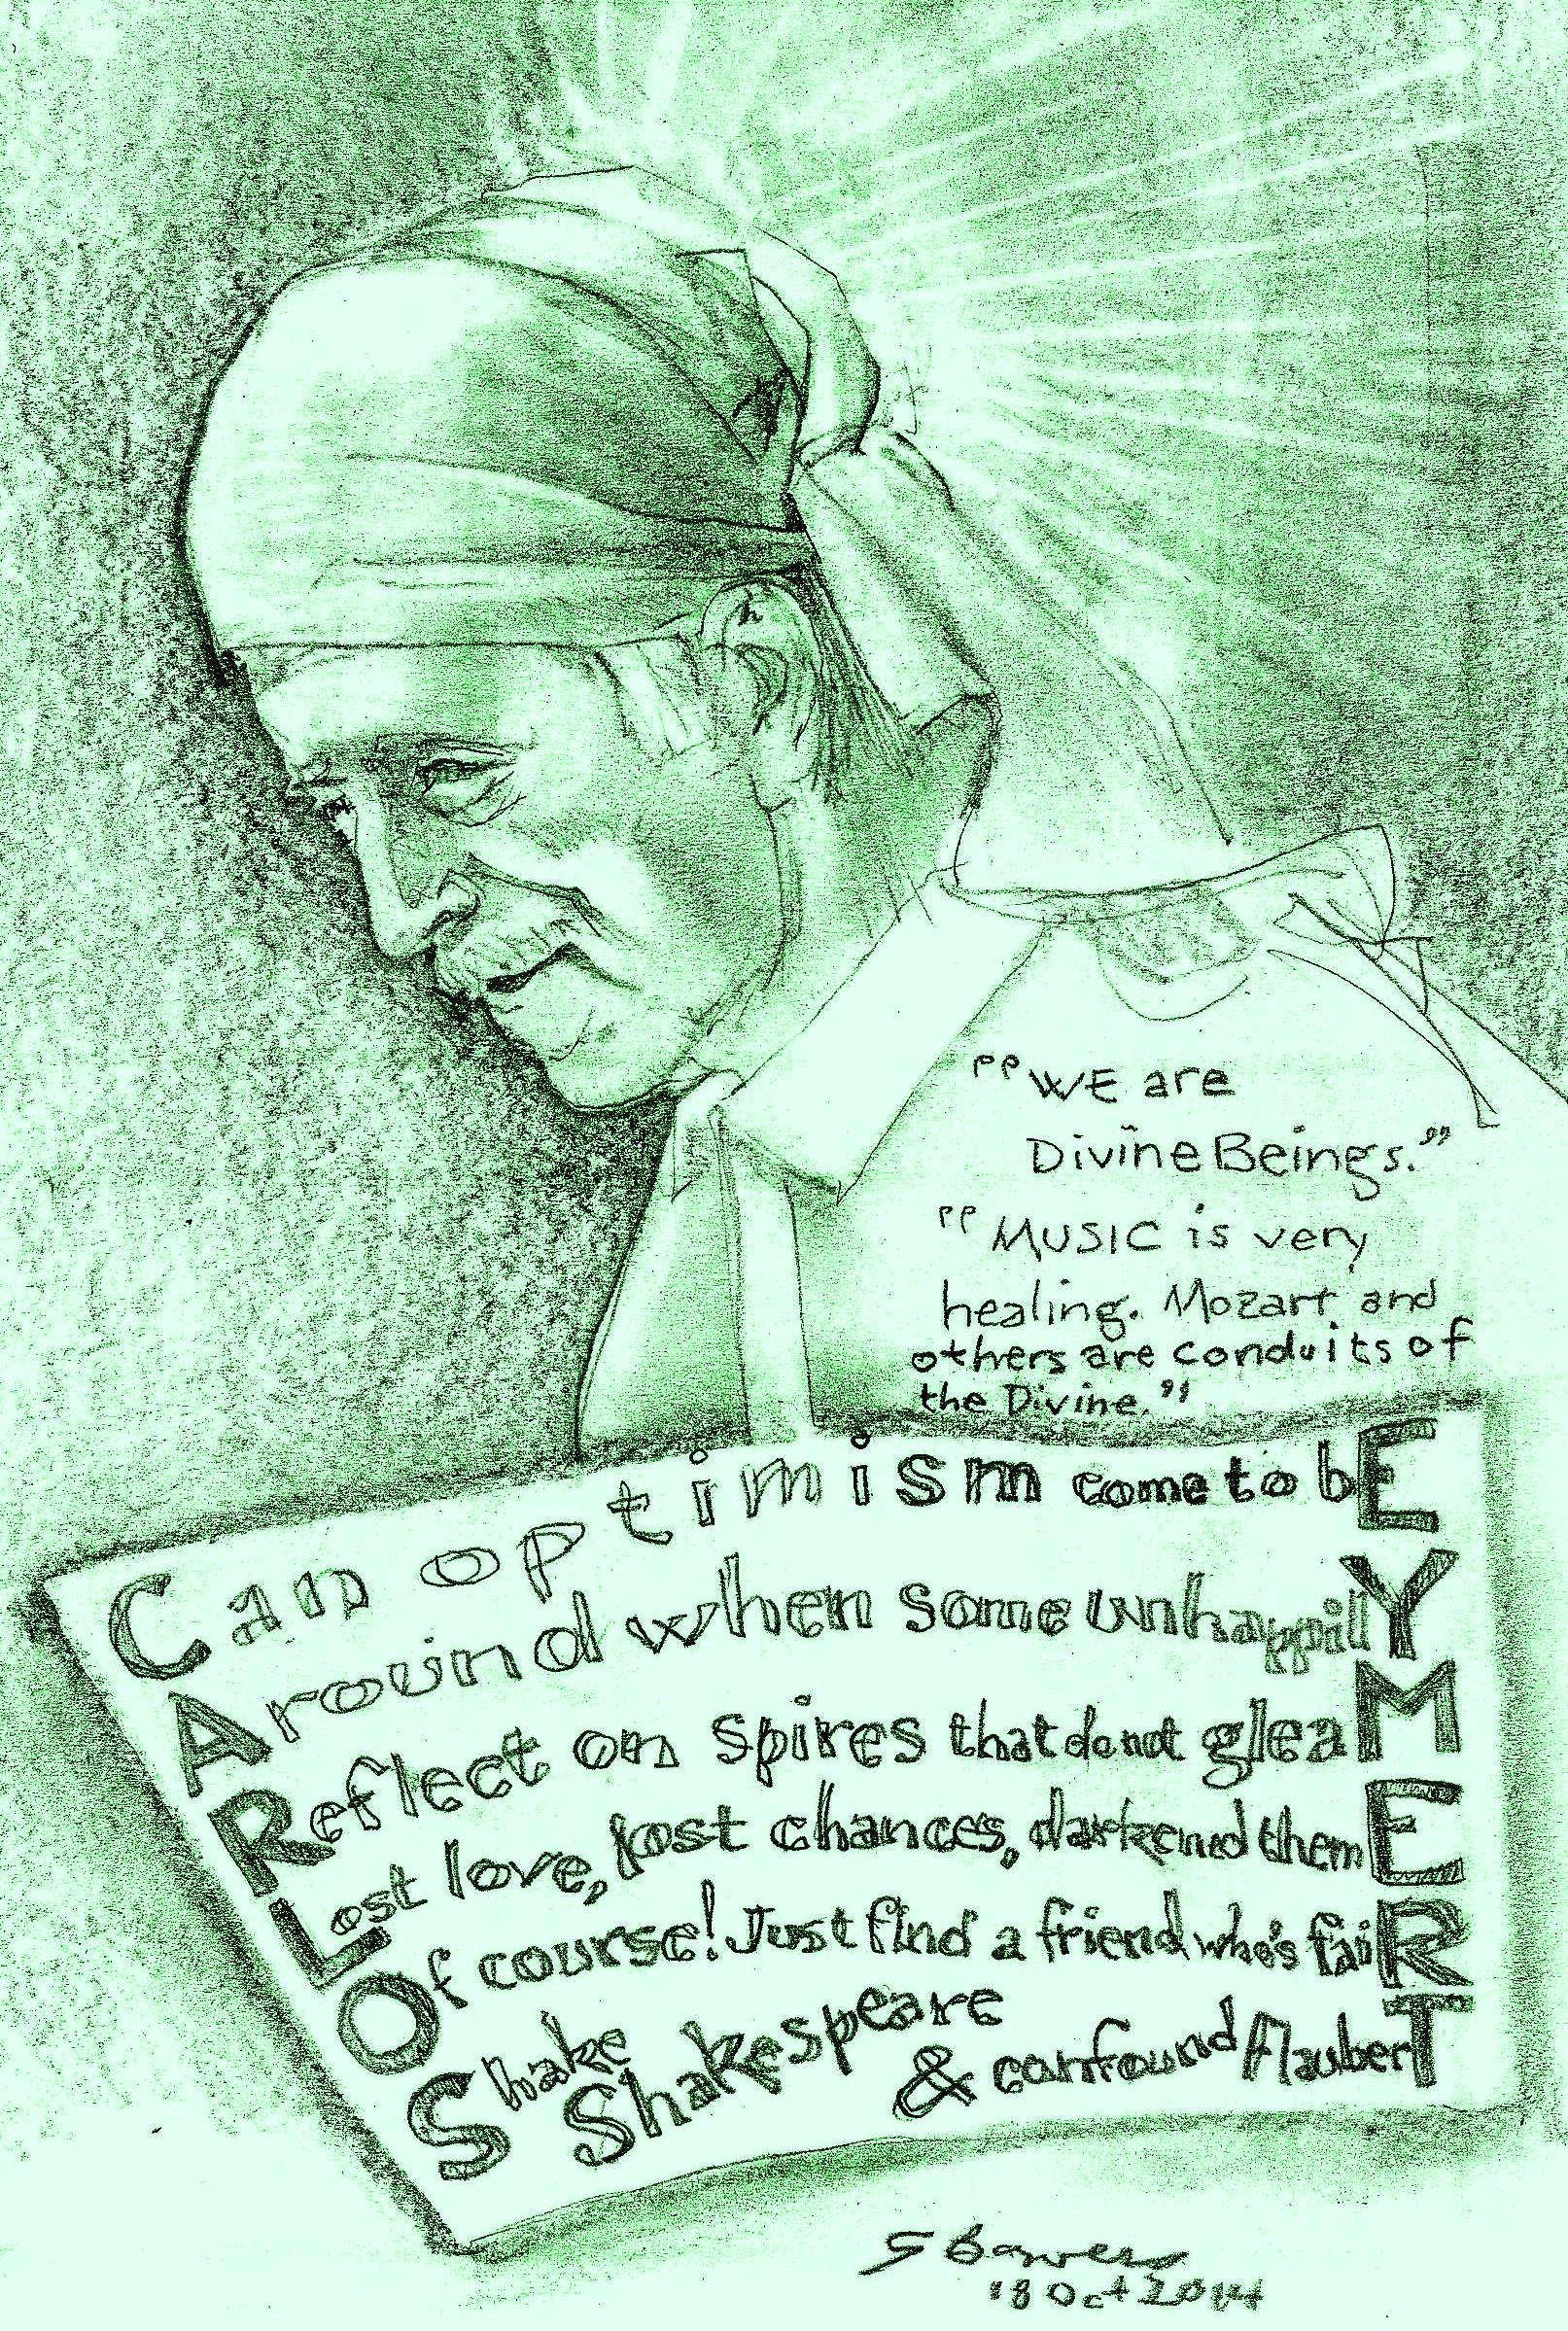 "WE are
Divine Beings."
"MUSIC is very
healing. Mozart and
others are conduits of
the Divine."
Can optimism come to bE
Around when some unhappilY
Reflect on spires that do not gleaM
Lost love, lost chances, darkened themE
Of course! Just find a friend who's faiR
Shake Shakespeare
& confound FlauberT
S Bowers
18 Oct 2014